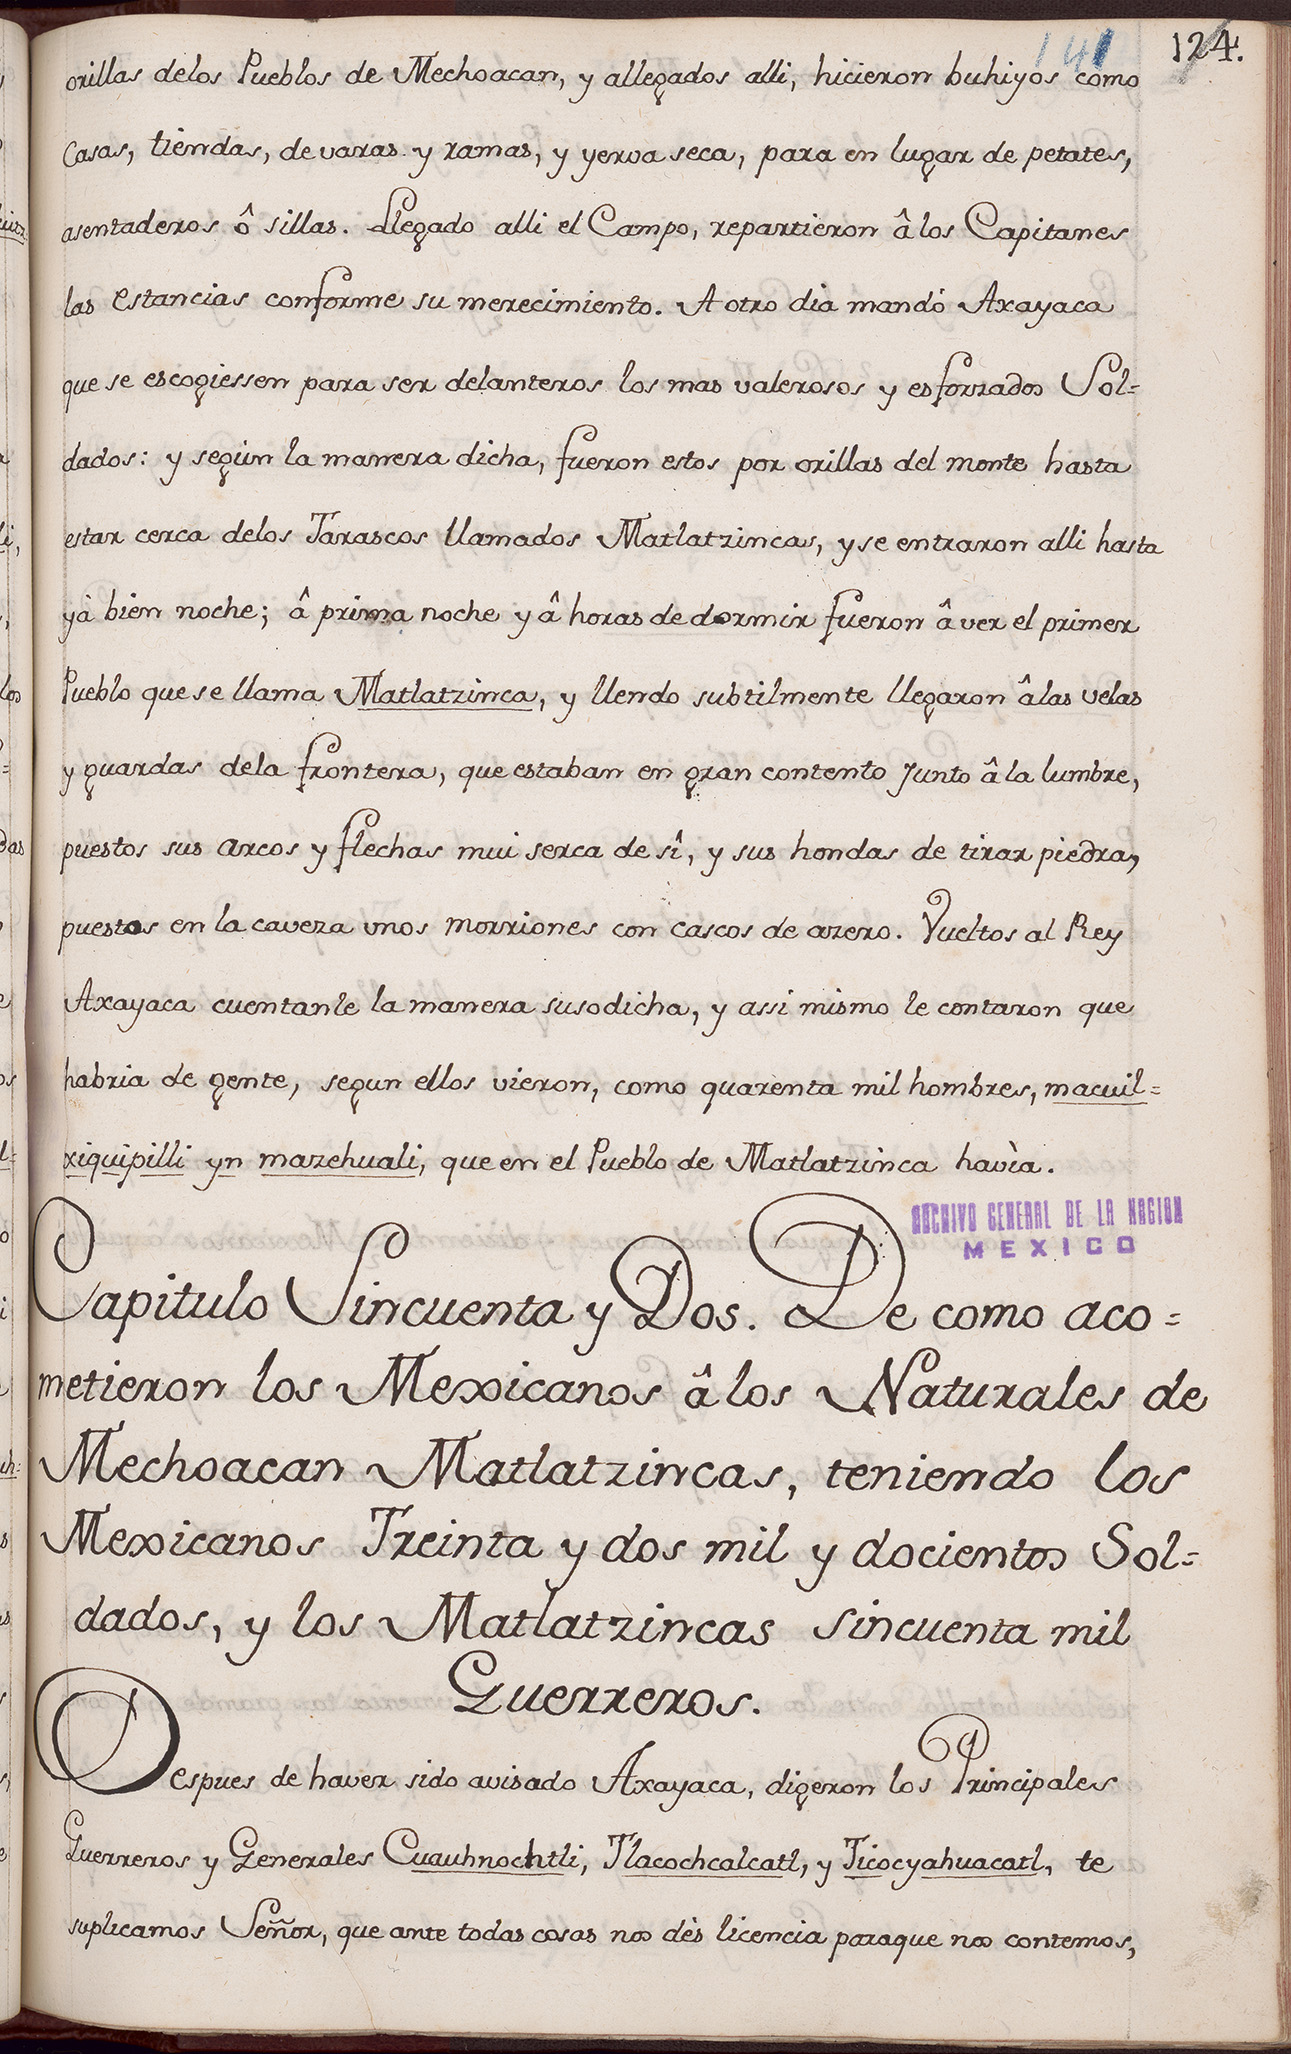 141 124.
orillas delos Pueblos de Mechoacan, y allegados alli, hicieron buhiyos como
Casas, tiendas, de varas y ramas, y yerva seca, para en lugar de petates,
asentaderos ô sillas. Llegado alli el Campo, repartieron â los Capitanes
las estancias conforme su merecimiento. A otro dia mandó Axayaca
que se escogiessen para ser delanteros los mas valerosos y esforzados Sol=
dados: y segùn la manera dicha, fueron estos por orillas del monte hasta
estar cerca delos Tarascos llamados Matlatzincas, y se entraron alli hasta
yà bien noche; â prima noche y â horas de dormir fueron â ver el primer
Pueblo que se llama Matlatzinca, y llendo subtilmente llegaron â las velas
y guardas dela frontera, que estaban en gran contento junto â la lumbre,
puestos sus arcos y flechas mui serca de sî, y sus hondas de tirar piedra,
puestos en la caveza unos morriones con cascos de azero. Vueltos al Rey
Axayaca cuentanle la manera susodicha, y assi mismo le contaron que
habria de gente, segun ellos vieron, como quarenta mil hombres, macuil=
xiquipilli yn mazehuali, que en el Pueblo de Matlatzinca havìa.
ARCHIVO GENERAL DE LA NACION
MEXICO
Capitulo Sincuenta y Dos. De como aco=
metieron los Mexicanos â los Naturales de
Mechoacan Matlatzincas, teniendo los
Mexicanos Treinta y dos mil y docientos Sol=
dados, y los Matlatzincas sincuenta mil
Guerreros.
Despues de haver sido avisado Axayaca, digeron los Principales
Guerreros y Generales Cuauhnochtli, Tlacochcalcatl, y Ticocyahuacatl, te
suplicamos Señor, que ante todas cosas nos dès licencia paraque nos contemos,